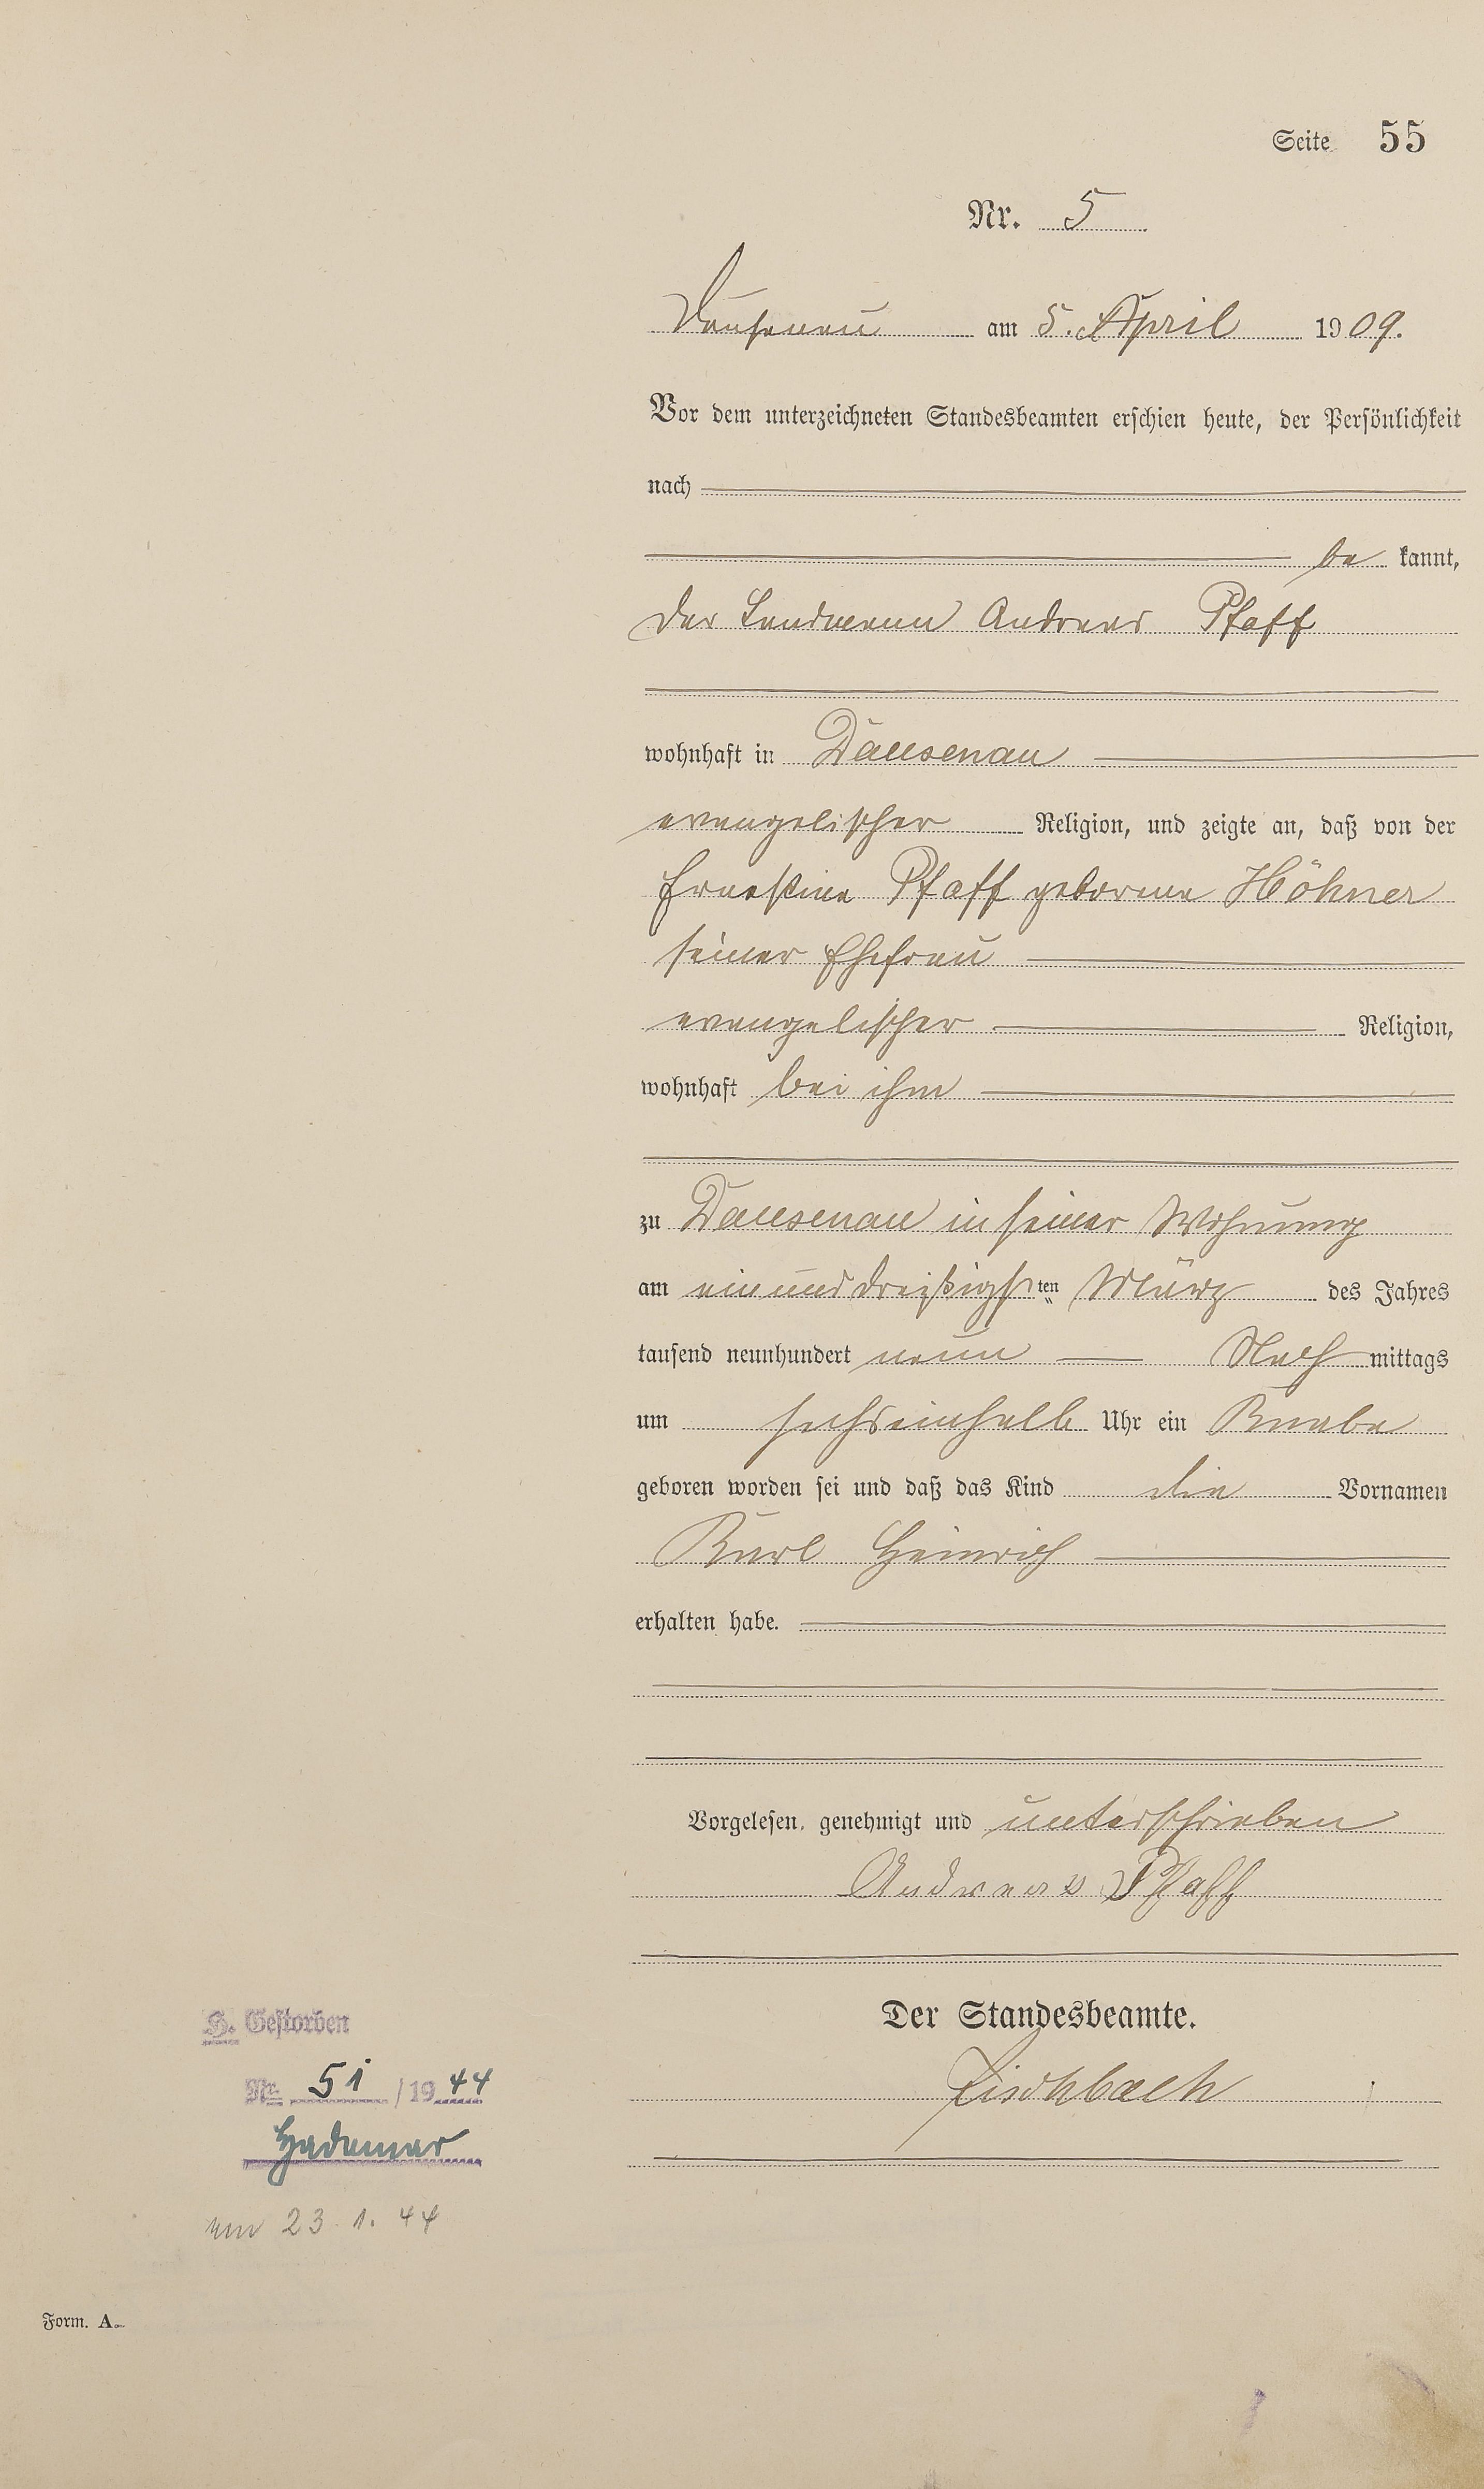 Seite 55
Nr. 5
Dausenau am 5. April 1909.
Vor dem unterzeichneten Standesbeamten erschien heute, der Persönlichkeit
nach
be kannt,
der Landmann Andreas Pfaff
wohnhaft in Dausenau
evangelischer Religion, und zeigte an, daß von der
Ernestine Pfaff geborene Höhner
seiner Ehefrau
evangelischer Religion,
wohnhaft bei ihm
zu Dausenau in seiner Wohnung
am einunddreißigsten März des Jahres
tausend neunhundert neun Nachmittags
um sechseinhalb Uhr ein Knabe
geboren worden sei und daß das Kind die Vornamen
Karl Heinrich
erhalten habe.
Vorgelesen, genehmigt und unterschrieben
Andreas Pfaff
Der Standesbeamte.
Fischbach
H. Gestorben
Nr. 51 /1944
Hadamar
am 23. 1. 44
Form. A.